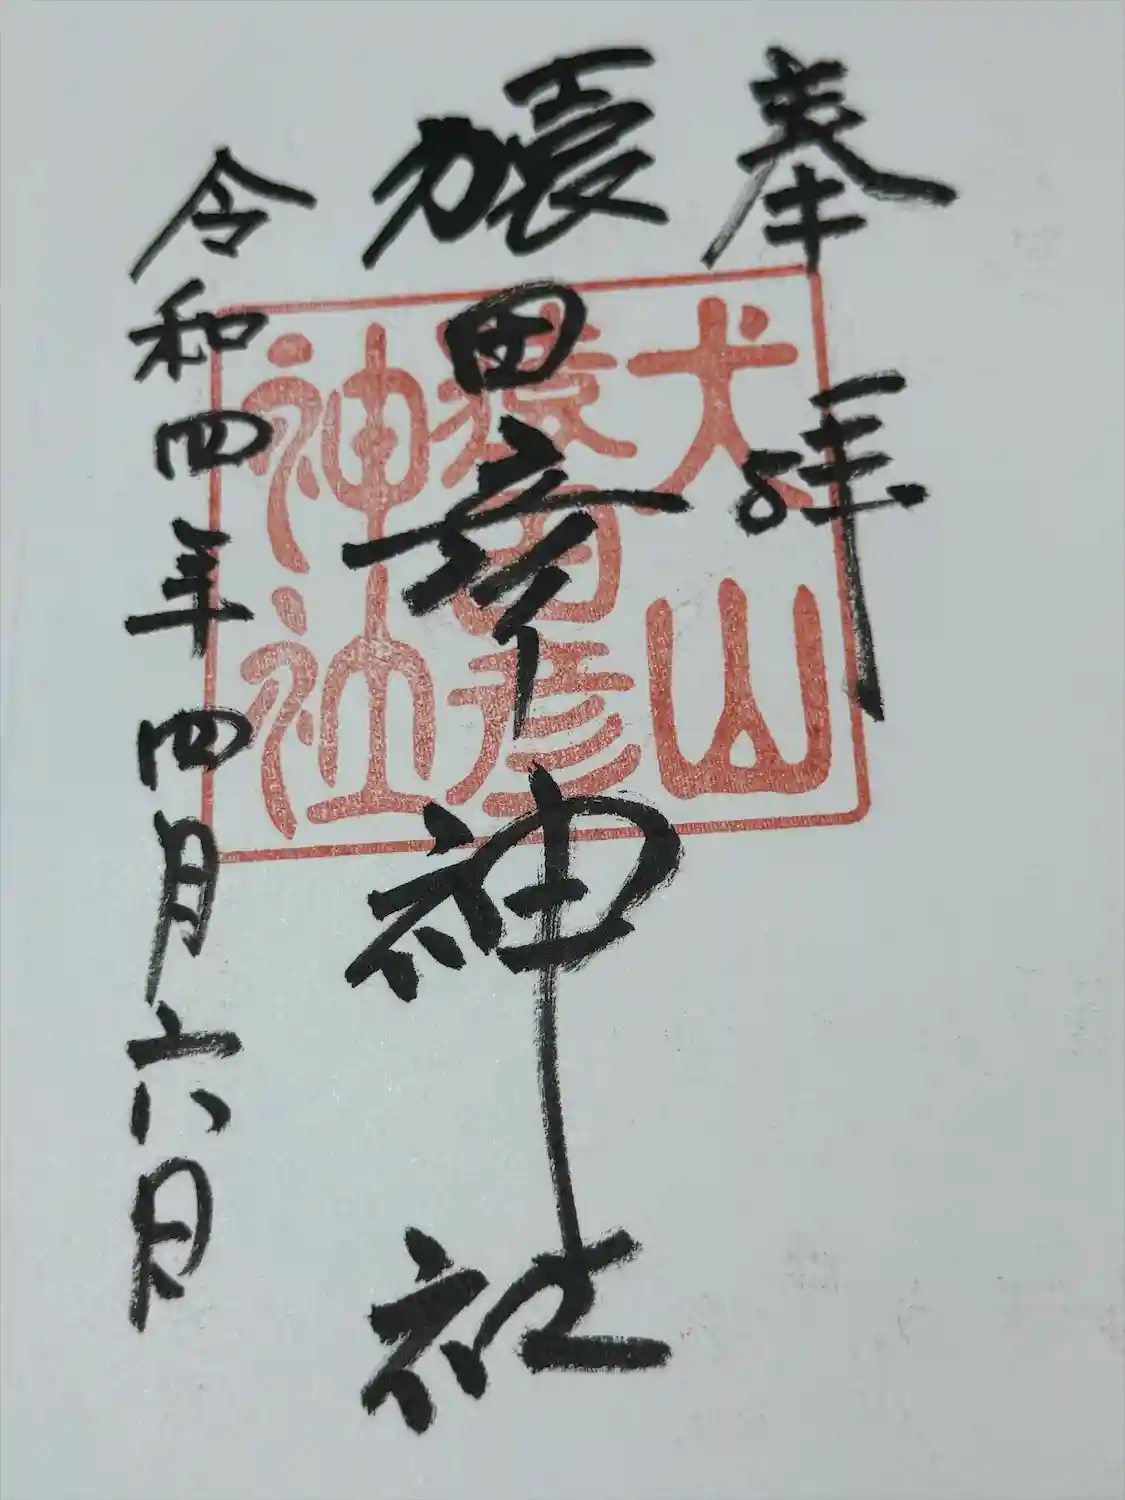 奉拝
猿田彦神社
令和四年四月六日
犬山
猿田彦
神社